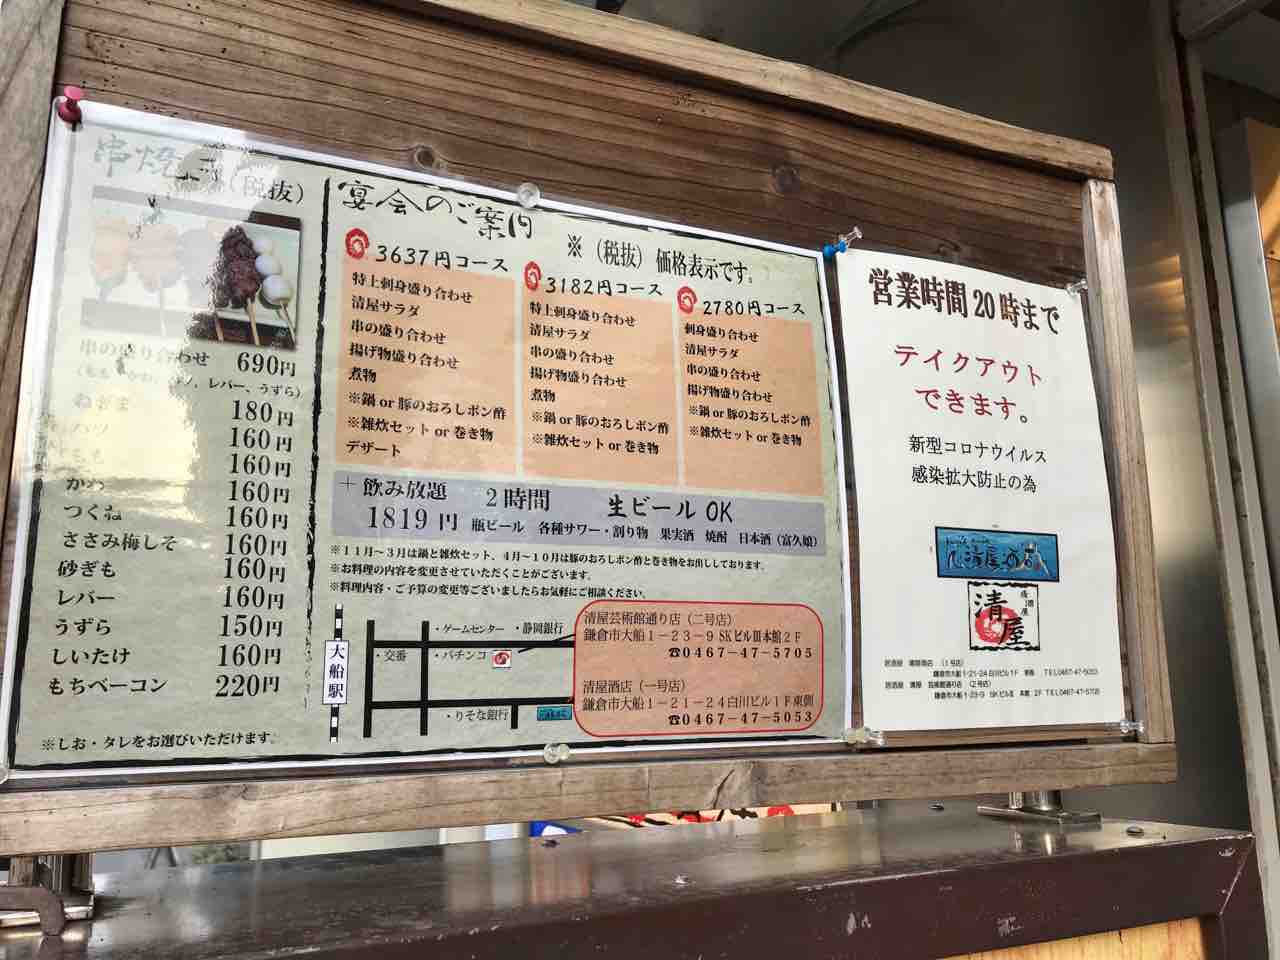 串焼き(税抜)
串の盛り合わせ 690円
ハツ、レバー、うずら)
ねぎま 180円
ハツ 160円
もも 160円
かわ 160円
つくね 160円
ささみ梅しそ 160円
砂ぎも 160円
レバー 160円
うずら 150円
しいたけ 160円
もちベーコン 220円
※しお・タレをお選びいただけます。
宴会のご案内
※(税抜)価格表示です。
3637円コース
特上刺身盛り合わせ
清屋サラダ
串の盛り合わせ
揚げ物盛り合わせ
煮物
※鍋 or 豚のおろしポン酢
※雑炊セット or 巻き物
デザート
3182円コース
特上刺身盛り合わせ
清屋サラダ
串の盛り合わせ
揚げ物盛り合わせ
煮物
※鍋 or 豚のおろしポン酢
※雑炊セット or 巻き物
2780円コース
刺身盛り合わせ
清屋サラダ
串の盛り合わせ
揚げ物盛り合わせ
※鍋 or 豚のおろしポン酢
※雑炊セット or 巻き物
+飲み放題 2時間 生ビールOK
1819円 瓶ビール 各種サワー・割り物 果実酒 焼酎 日本酒(富久娘)
※11月~3月は鍋と雑炊セット、4月~10月は豚のおろしポン酢と巻き物をお出ししております。
※お料理の内容を変更させていただくことがございます。
※料理内容・ご予算の変更等ございましたらお気軽にご相談ください。
大船駅
・ゲームセンター ・静岡銀行
・交番 ・パチンコ
・りそな銀行
清屋芸術館通り店(二号店)
鎌倉市大船1-23-9 SKビルⅢ本館2F
☎0467-47-5705
清屋酒店(一号店)
鎌倉市大船1-21-24白川ビル1F東側
☎0467-47-5053
営業時間20時まで
テイクアウト
できます。
新型コロナウイルス
感染拡大防止の為
居酒屋
清屋
居酒屋 清屋酒店 (1号店)
鎌倉市大船1-21-24 白川ビル1F 東側 TEL0467-47-5053
居酒屋 清屋 芸術館通り店 (2号店)
鎌倉市大船1-23-9 SKビルⅢ 本館 2F TEL0467-47-5705